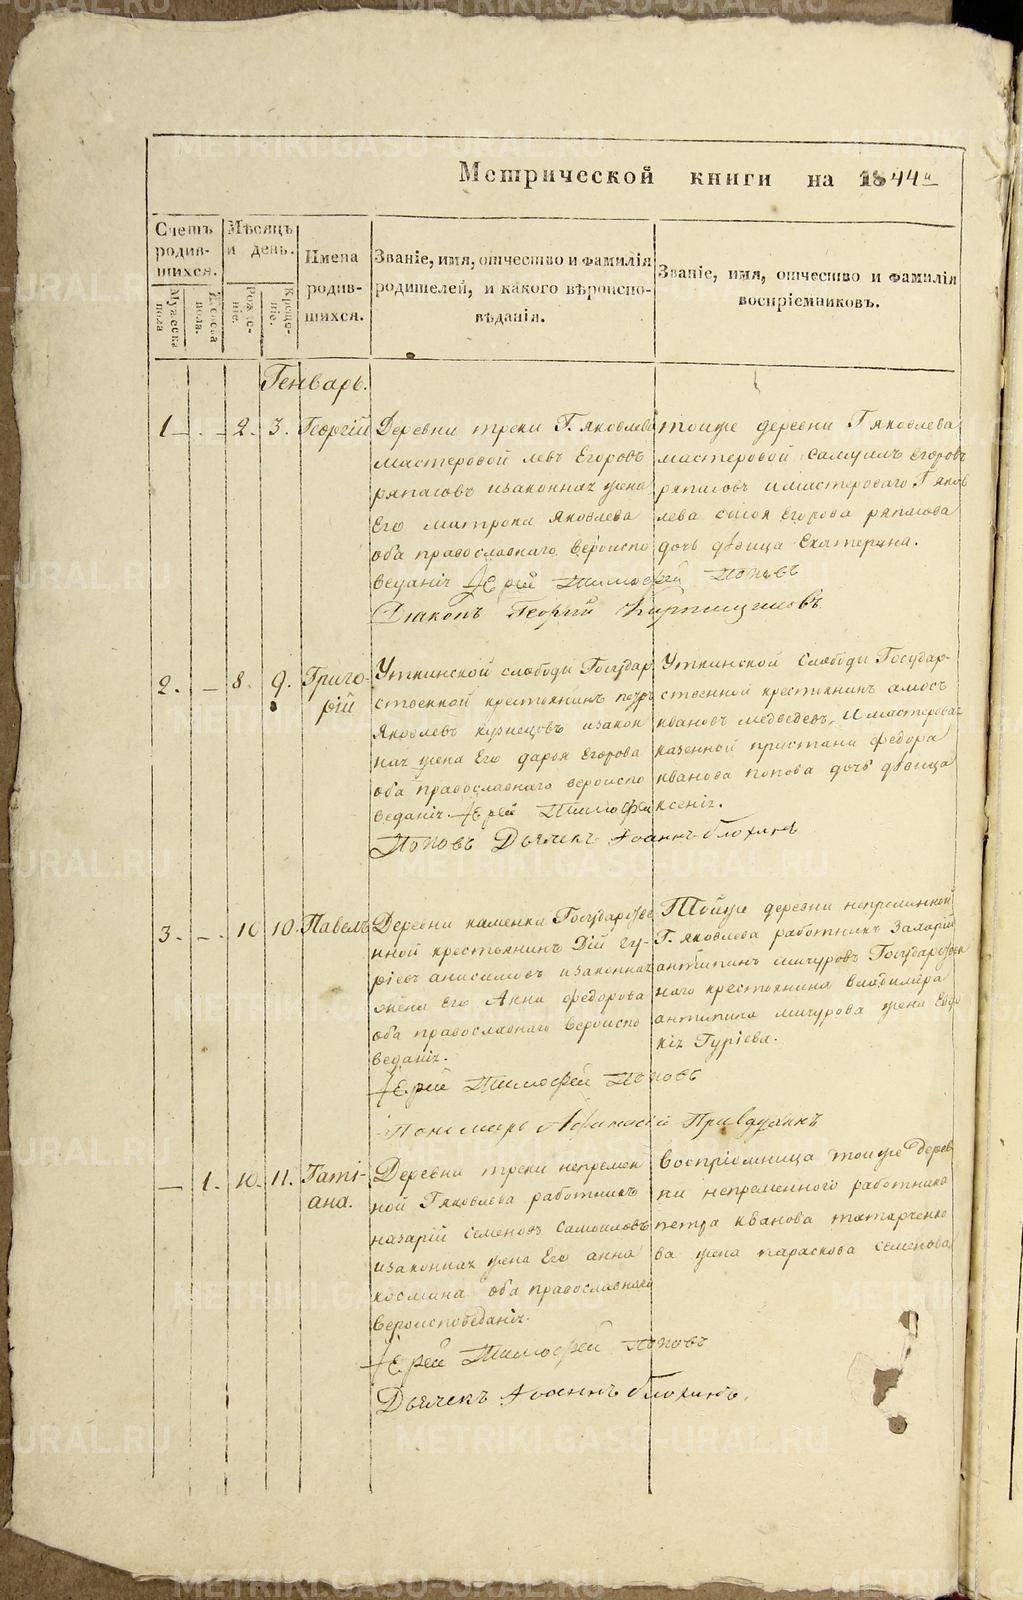 Метрической книги на 1844й
Счетъ родив-шихся.
Мужеска пола
Женска пола.
Мѣсяцъ и день.
Рожде-ніе.
Креще-ніе.
Имена родив-шихся.
Званіе, имя, отчество и фамилія
родителей, и какого вѣроиспо-
вѣданія.
Званіе, имя, отчество и фамилія
воспріемниковъ.
Генварь.
1 - . - 2. 3. Георгій
Деревни треки Г. яковлева
мастеровой левъ Егоровъ
ряпасовъ изаконная жена
Его матрона яковлева
оба православнаго вероиспо
веданія Іерей Тимофей Поповъ
Діаконъ Георгій
тоиже деревни Г яковлева
мастеровой самуилъ Егоровъ
ряпасовъ имастероваго Г яков
лева Егорова ряпасова
дочь дѣвица Екатерина.
2. - 8. 9. Григо-
рій
Уткинской слободы Государ
ственной крестьянинъ петръ
Яковлевъ кузнецовъ изакон
ная жена Его дарья Егорова
оба православнаго вероиспо
веданія. Іерей Тимофей
Поповъ Дьячекъ Іоаннъ блохинъ
Уткинской слободы Государ-
ственной крестьянинъ амосъ
ивановъ медведевъ, Имастероваго
казенной пристани федора
иванова попова дочь дѣвица
ксенія.
3. - . 10 10. Павелъ
Деревни каменки Государстве
нной крестьянинъ Дій гу-
ріевъ анисимовъ изаконная
жена Его Анна федорова
оба православнаго вероиспо
веданія.
Іерей Тимофей Поповъ
Пономарь Афанасій
Тойже деревни непременной
Г. яковлева работникъ Захарій
антипинъ мичуровъ Государствен
наго крестьянина владимира
антипина мичурова жена Евдо
кія Гуріева.
- 1. 10. 11. Таті-
ана.
Деревни треки непремен
ной Гяковлева работникъ
назарій семеновъ самоиловъ
изаконная жена Его анна
космина оба православнаго
вероисповеданія.
Іерей Тимофей Поповъ
Дьячекъ Іоаннъ блохинъ.
Воспріемница тоиже дерев
ни непременного работника
петра иванова татарченко
ва жена параскова семенова